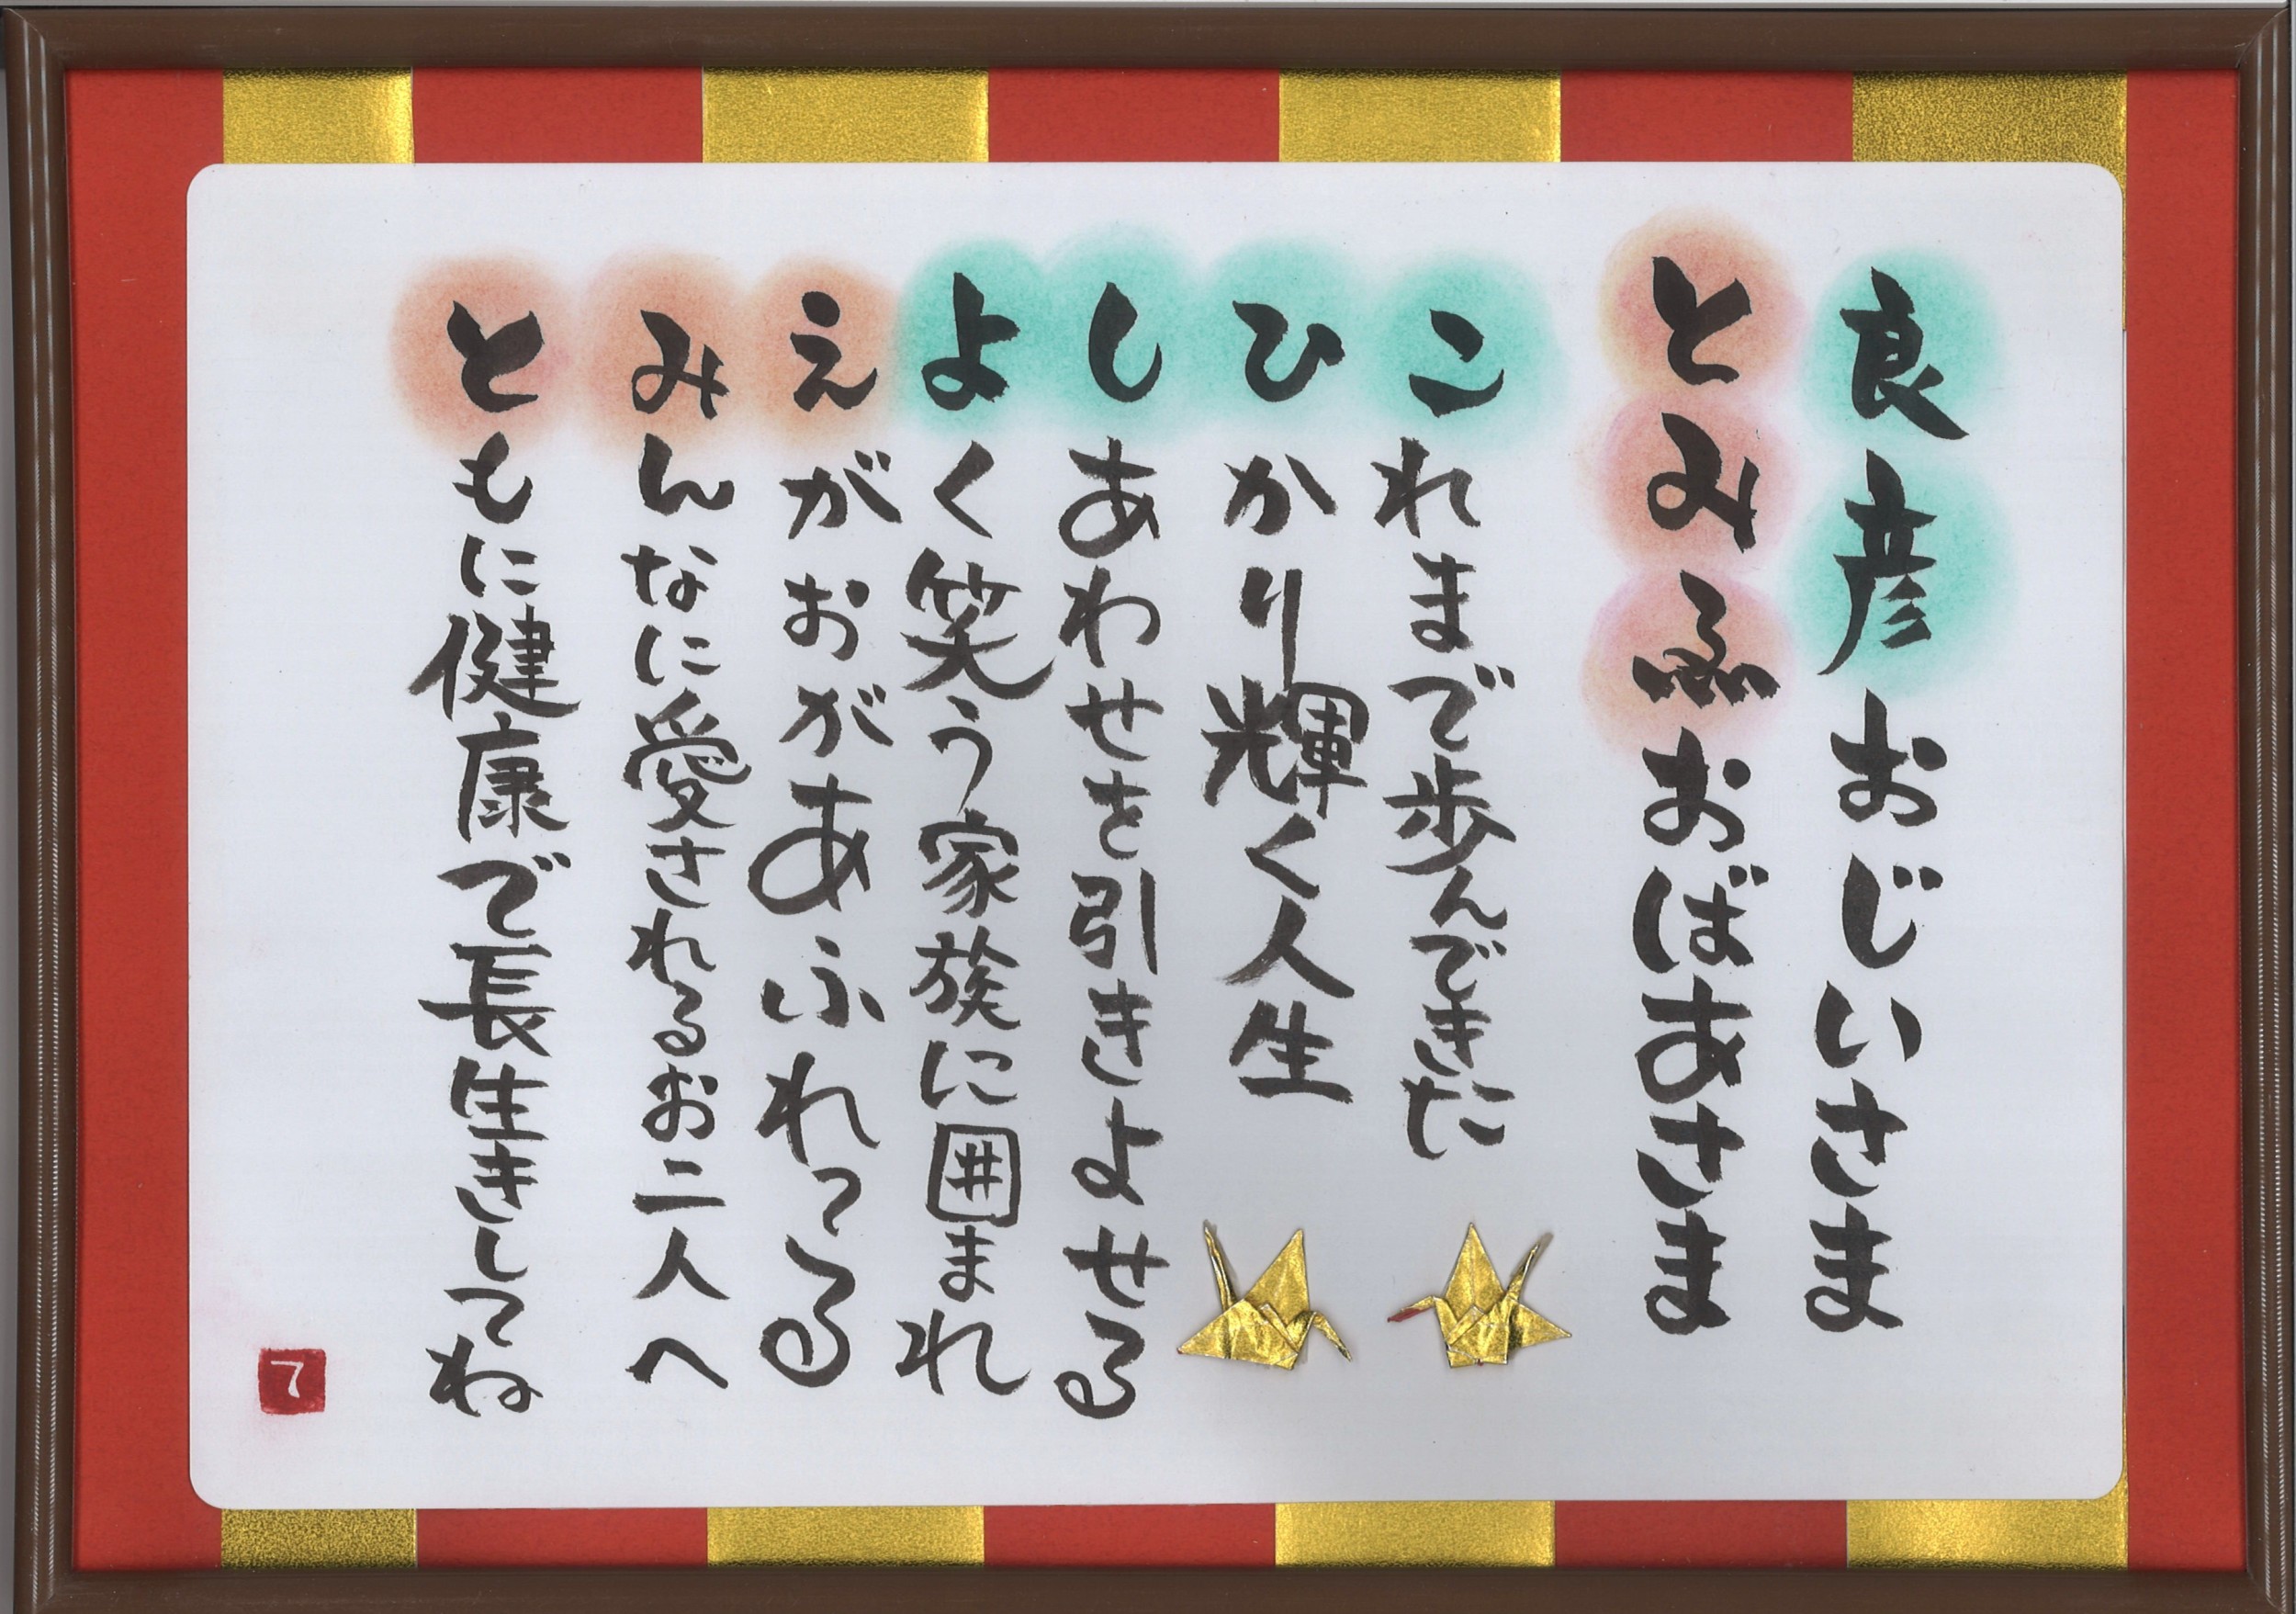 良彦おじいさま
とみゑおばあさま
これまで歩んできた
ひかり輝く人生
しあわせを引きよせる
よく笑う家族に囲まれ
えがおがあふれてる
みんなに愛されるお二人へ
ともに健康で長生きしてね
7